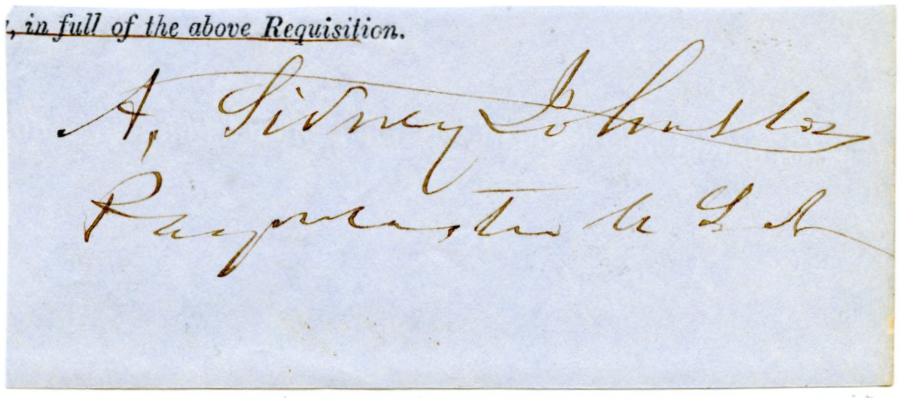 , in full of the above Requisition.
A, Sidney Johnston
Paymaster U S A